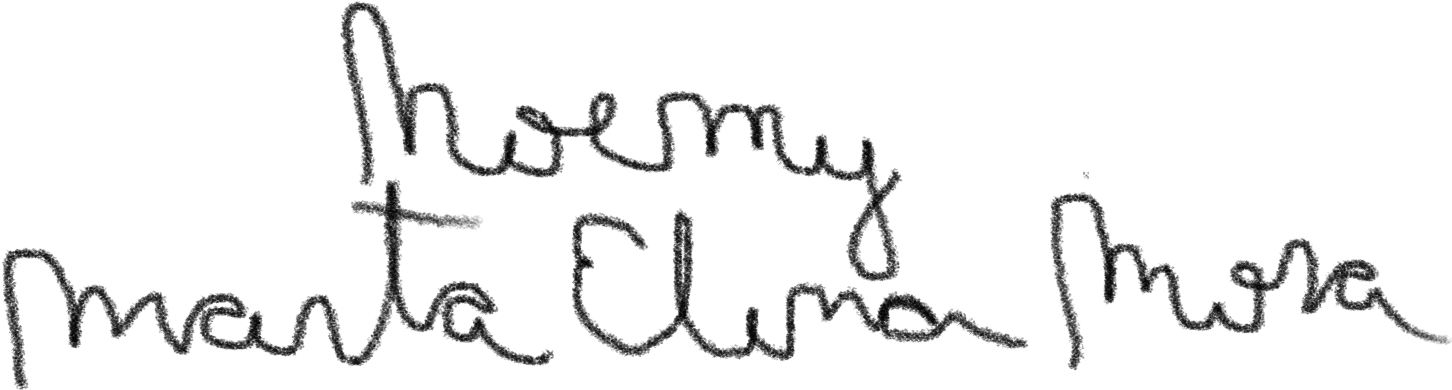 Noemy
Marta Elina Mora